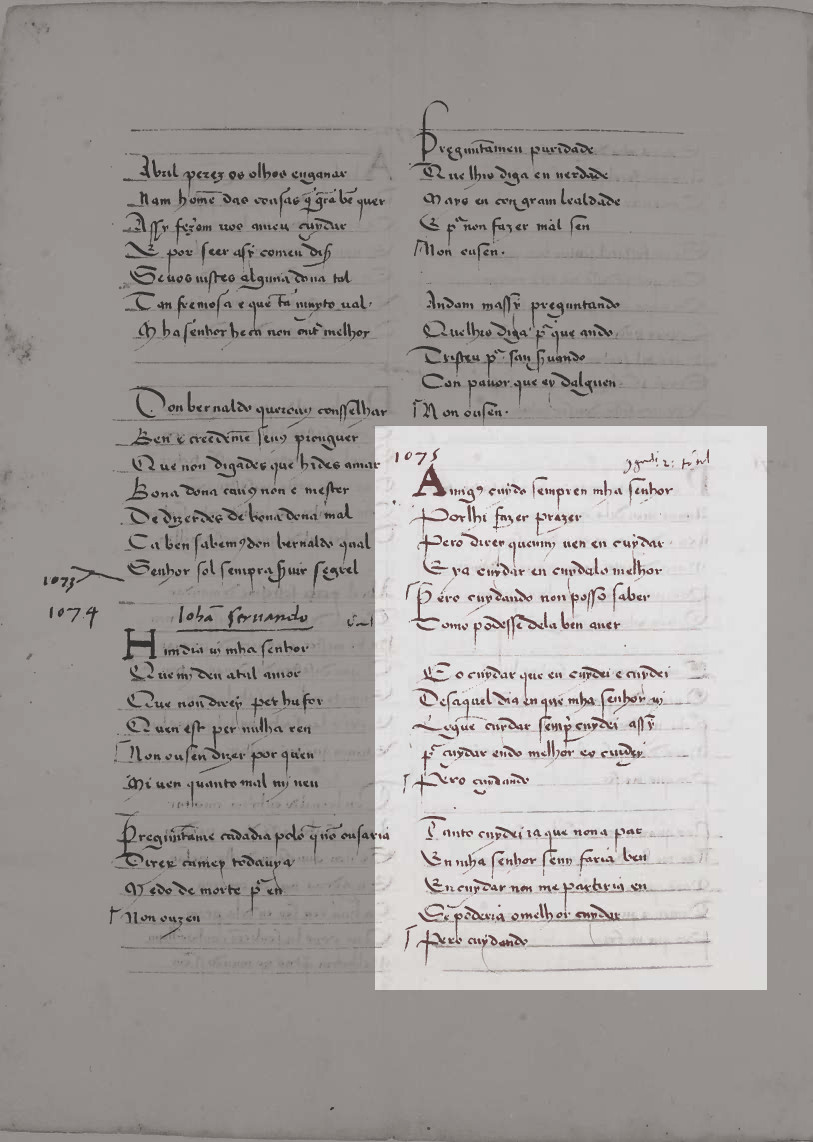 Abril perez os olhos enganar
Uam home˜ das cousas q̄ gr̃a be˜ quer
Assy fezom uos a meu cuydar
E por seer assy comeu dis
Se uos uistes alguna dona tal
Tan fremosa e que ta˜ muyto ual
Mha senhor he ca non out melhor
Don bernaldo quereuꝯ consselhar
Ben e creedeme seuꝯ prouguer
Que non digades que hides amar
Bona dona cauꝯ non e mester
De dizerdes de bona dona mal
Ca ben sabemꝯ don bernaldo qual
Senhor sol sempra s̃uir segrel
1073
1074
Joha˜ seruando
Hun dia ui mha senhor
Que mi deu atal amor
Que non direy per hu for
Quen est per nulha ren
Non ousen dizer por quen
Mi uen quanto mal mi uen
Pregũtame cada dia polo q̄ nō ousaria
Dizer ca mey todauya
Medo de morte p̃ en
Non ouzen
Pregũtameu puridade
Que lhis diga en uerdade
Mays eu con gram lealdade
E p̃ non fazer mal sen
Non ousen.
Andam massy preguntando
Que lhis diga p̃ que ando
Tristeu p̃ san s̃uando
Con pauor que ey dalguen
Non ousen.
1075
Amigꝯ cuydo sempren mha senhor
Por lhi fazer prazer
Pero direi que mi uen en cuydar
E ya cuydar en cuydalo melhor
Pero cuydando non posso saber
Como podesse dela ben auer
Eo cuydar que eu cuydei e cuydei
Des aquel dia en que mha senhor ui
Logue˜ cuydar semp̃ cuydei assy
p̃ cuydar endo melhor e o cuydey
Pero cuydando
Tanto cuydei ia que non a par
En mha senhor semi faria ben
En cuydar non me partiria en
Se poderia o melhor cuydar
Pero cuydando